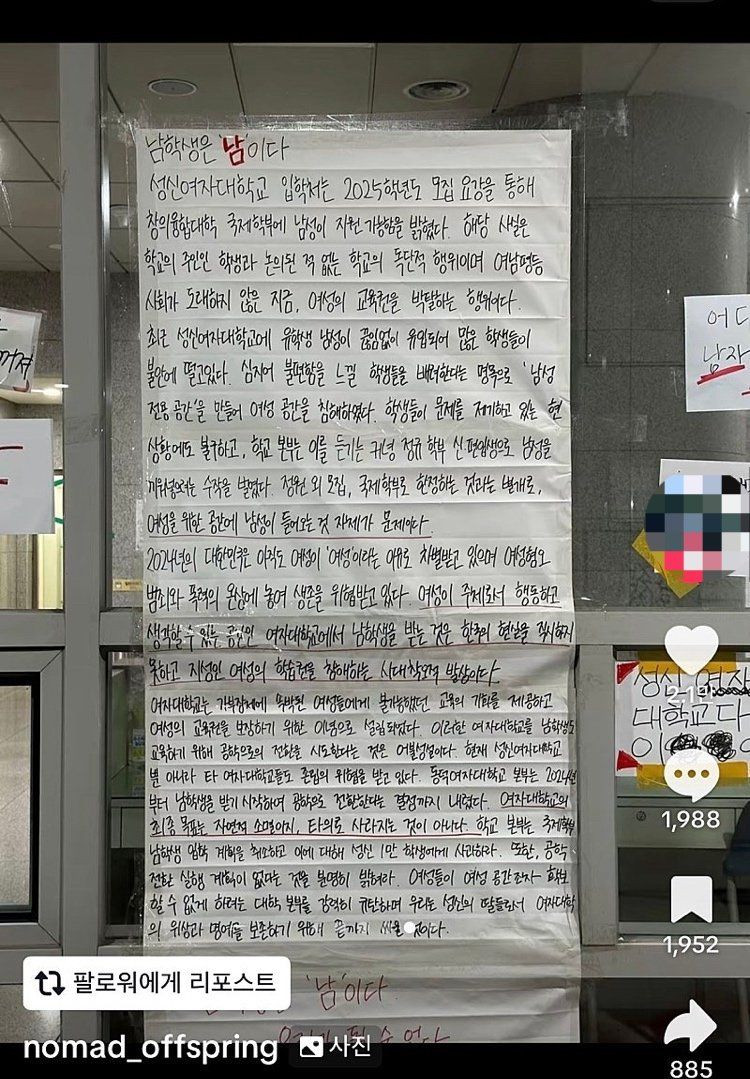 남학생은 '남'이다
성신여자대학교 입학처는 2025학년도 모집 요강을 통해
창의융합대학 국제학부에 남성이 지원 가능함을 밝혔다. 해당 사실은
학교의 주인인 학생과 논의된 적 없는 학교의 독단적 행위이며 여남평등
사회가 도래하지 않은 지금, 여성의 교육권을 박탈하는 행위이다.
최근 성신여자대학교에 유학생 남성이 끊임없이 유입되어 많은 학생들이
불안에 떨고있다. 심지어 불편함을 느낄 학생들을 배려한다는 명목으로 '남성
전용 공간'을 만들어 여성 공간을 침해하였다. 학생들이 문제를 제기하고 있는 현
상황에도 불구하고, 학교 본부는 이를 듣기는 커녕 정규 학부 신·편입생으로 남성을
끼워넣으려는 수작을 벌였다. 정원 외 모집, 국제학부로 한정하는 것과는 별개로,
여성을 위한 공간에 남성이 들어오는 것 자체가 문제이다.
2024년의 대한민국은 아직도 여성이 '여성'이라는 이유로 차별받고 있으며 여성혐오
범죄와 폭력의 온상에 놓여 생존을 위협받고 있다. 여성이 주체로서 행동하고
생각할 수 있는 공간인 여자대학교에서 남학생을 받는 것은 한국의 현실을 직시하지
못하고 지성인 여성의 학습권을 침해하는 시대착오적 발상이다.
여자대학교는 가부장제에 속박된 여성들에게 불가능했던 교육의 기회를 제공하고
여성의 교육권을 보장하기 위한 이념으로 설립되었다. 이러한 여자대학교를 남학생도
교육하기 위해 공학으로의 전환을 시도한다는 것은 어불성설이다. 현재 성신여자대학교
뿐 아니라 타 여자대학교들도 존립의 위협을 받고 있다. 동덕여자대학교 본부는 2024년
부터 남학생을 받기 시작하여 공학으로 전환한다는 결정까지 내렸다. 여자대학교의
최종 목표는 자연적 소멸이지, 타의로 사라지는 것이 아니다. 학교 본부는 국제학부
남학생 입학 계획을 취소하고 이에 대해 성신 1만 학생에게 사과하라. 또한, 공학
전환 실행 계획이 없다는 것을 분명히 밝혀라. 여성들이 여성 공간조차 확보
할 수 없게 하려는 대학 본부를 강력히 규탄하며 우리는 성신의 딸들로서 여자대학
의 위상과 명예를 보존하기 위해 끝까지 싸울 것이다.
'남'이다.
어디
남자
성신 여자
대학교다
이
2.1만
1,988
1,952
885
팔로워에게 리포스트
nomad_offspring
사진